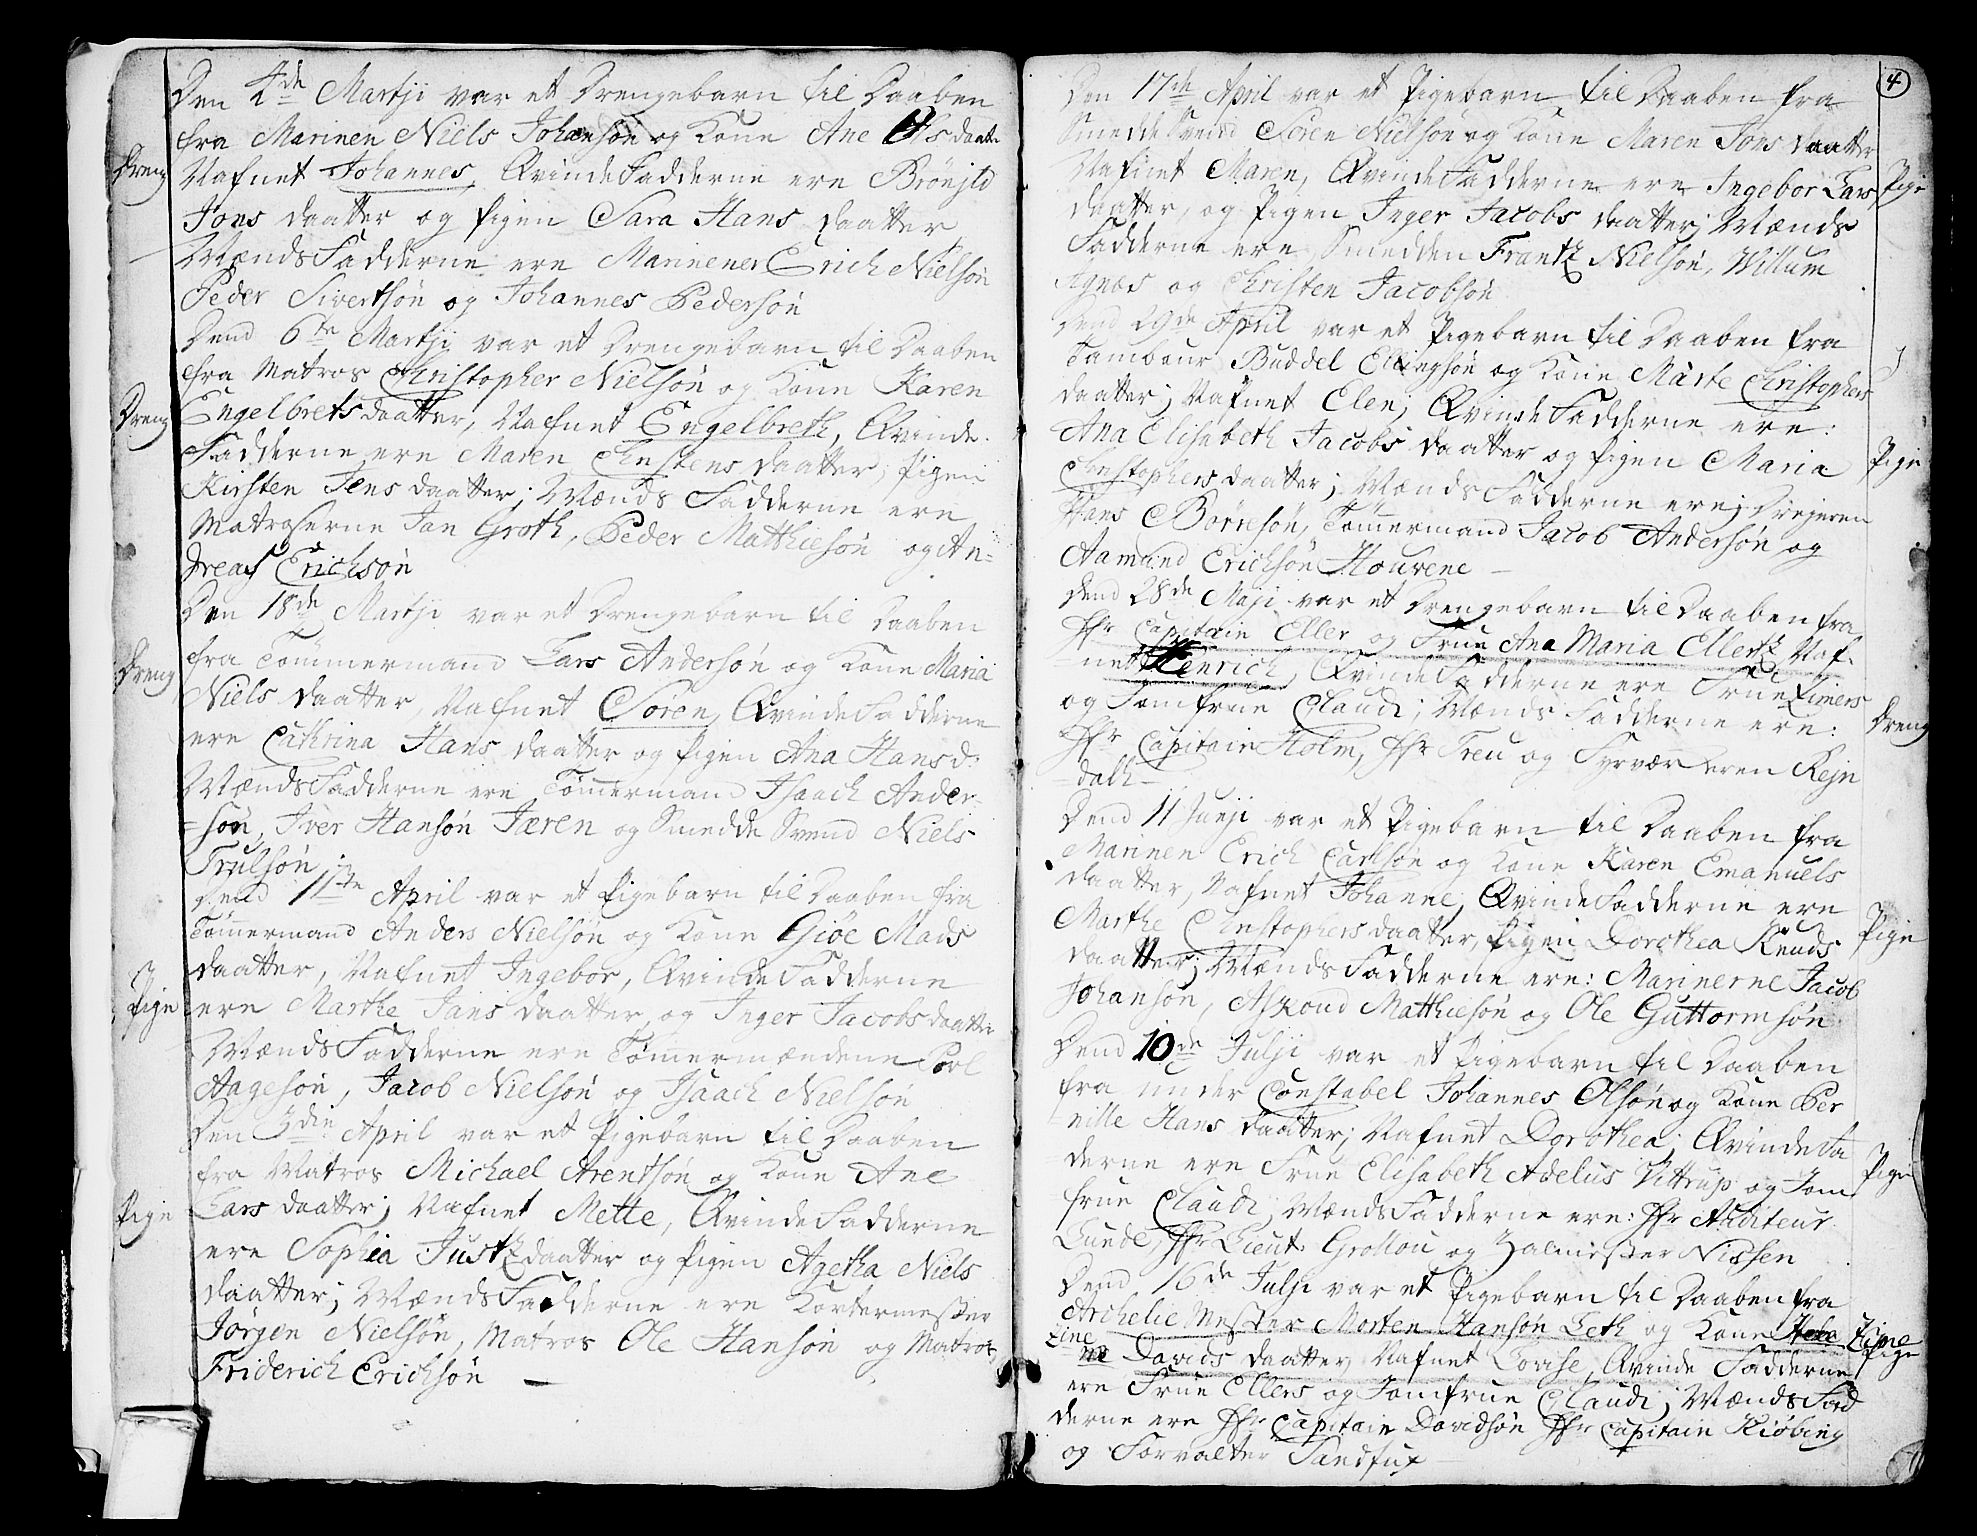 Den 4de Martji var et Drengebarn til Daaben
fra Marinen Niels Johansøn og Kone Ane Ols daatter
Dreng
Nafnet Johannes, QvindeFadderne ere Brönild
Jons daatter og Pigen Sara Hans daatter
MændsFadderne ere Marinener Erich Nielsøn
Peder Sivertsøn og Johannes Pedersøn
Dend 6te Martji var et Drengebarn til Daaben
fra Matros Christopher Nielsøn og Kone Karen
Dreng
Engelbrets daatter, Nafnet Engelbreth, Qvinde
Fadderne ere Maren Christens daatter, Pigen
Kirsten Jens daatter; Mænds Fadderne ere
Matroserne Jan Groth, Peder Mathiesøn og An=
dreas Erichsøn
Den 18de Martji var et Drengebarn til Daaben
fra Tømmermand Lars Andersøn og Kone Maria
Dreng
Niels daatter, Nafnet Søren, QvindeFadderne
ere Cathrina Hans daatter og Pigen Ana Hans d:
MændsFadderne ere Tømmermand Isaach Ander=
=søn, Iver Hansøn Jæren og Smedde Svend Niels
Trulsøn
Dend 11te April var et Pigebarn til Daaben fra
Tømmermand Anders Nielsøn og Kone Giöe Mads
daatter, Nafnet Ingebor, QvindeFadderne
Pige
ere Marthe Jans daatter og Inger Jacobs daatter
MændsFadderne ere Tømmermændene Povl
Aagesøn, Jacob Nielsøn og Isaach Nielsøn
Den 3die April var et Pigebarn til Daaben
fra Matros Michael Arentsøn og Kone Ane
Pige
Lars daatter; Nafnet Mette, QvindeFadderne
ere Sophia Justz daatter og Pigen Agetha Niels
daatter; MændsFadderne ere Kortermester
Jørgen Nielsøn, Matros Ole Hansøn og Matros
Friderich Erichsøn
4
Den 17de April var et Pigebarn til Daaben fra
Smedde Svend Søren Nielsøn og Kone Maren Jons daatter
Nafnet Maren, QvindeFadderne ere Ingebor Lars
Pige
daatter, og Pigen Inger Jacobs daatter; Mænds
Fadderne ere Smedden Frantz Nielsøn, Willum
Agnes og Christen Jacobsøn
Dend 29de April var et Pigebarn til Daaben fra
Tambour Buddel Ellingsøn og Kone Marte Christophers
daatter; Nafnet Elen; QvindeFadderne ere:
Ana Elisabeth Jacobs daatter og Pigen Maria
Pige
Christophers daatter; MændsFadderne ere; Drejeren
Hans Børresøn, Tømmermand Jacob Andersøn og
Aamund Erichsøn Houvene
Dend 28de Maji var et Drengebarn til Daaben fra
Hr Capitain Eller og Frue Ana Maria Ellertz Naf-
net Henrich, QvindeFadderne ere Frue Zimers
og Jomfrue Claudi; Mænds Fadderne ere:
Dreng
Hr Capitain Holm, Hr Treu og Fyrværkeren Rejn
=dalh
Dend 11 Junji var et Pigebarn til Daaben fra
Marinen Erich Carlsøn og Kone Karen Emanuels
daatter, Nafnet Johanne; QvindeFadderne ere
Marthe Christophers daatter, Pigen Dorothea Knuds
Pige
daatter; MændsFadderne ere: Marinerne Jacob
Johansøn, Asloud Matthiesøn og Ole Guttormsøn
Dend 10de Julji var et Pigebarn til Daaben
fra under Constabel Johannes Olsøn og Kone Per
nille Hans daatter; Nafnet Dorothea; QvindeFa
derne ere Frue Elisabeth Adelus Vittrup og Jom
Pige
frue Claudi; MændsFadderne ere: Hr Auditeur
Lunde, Hr Lieut. Grollou og Zalmester Nissen
Dend 16de Julji var et Pigebarn til Daaben fra
Archelie Mester Morten Hansøn Leth og Kone
Davids daatter, Nafnet Lovise, Qvinde Fadderne
Pige
ere Frue Ellers og Jomfrue Claudi; MændsFad
derne ere Hr Capitain Davidsøn Hr Capitain Kiøbing
og Forvalter Sandfux